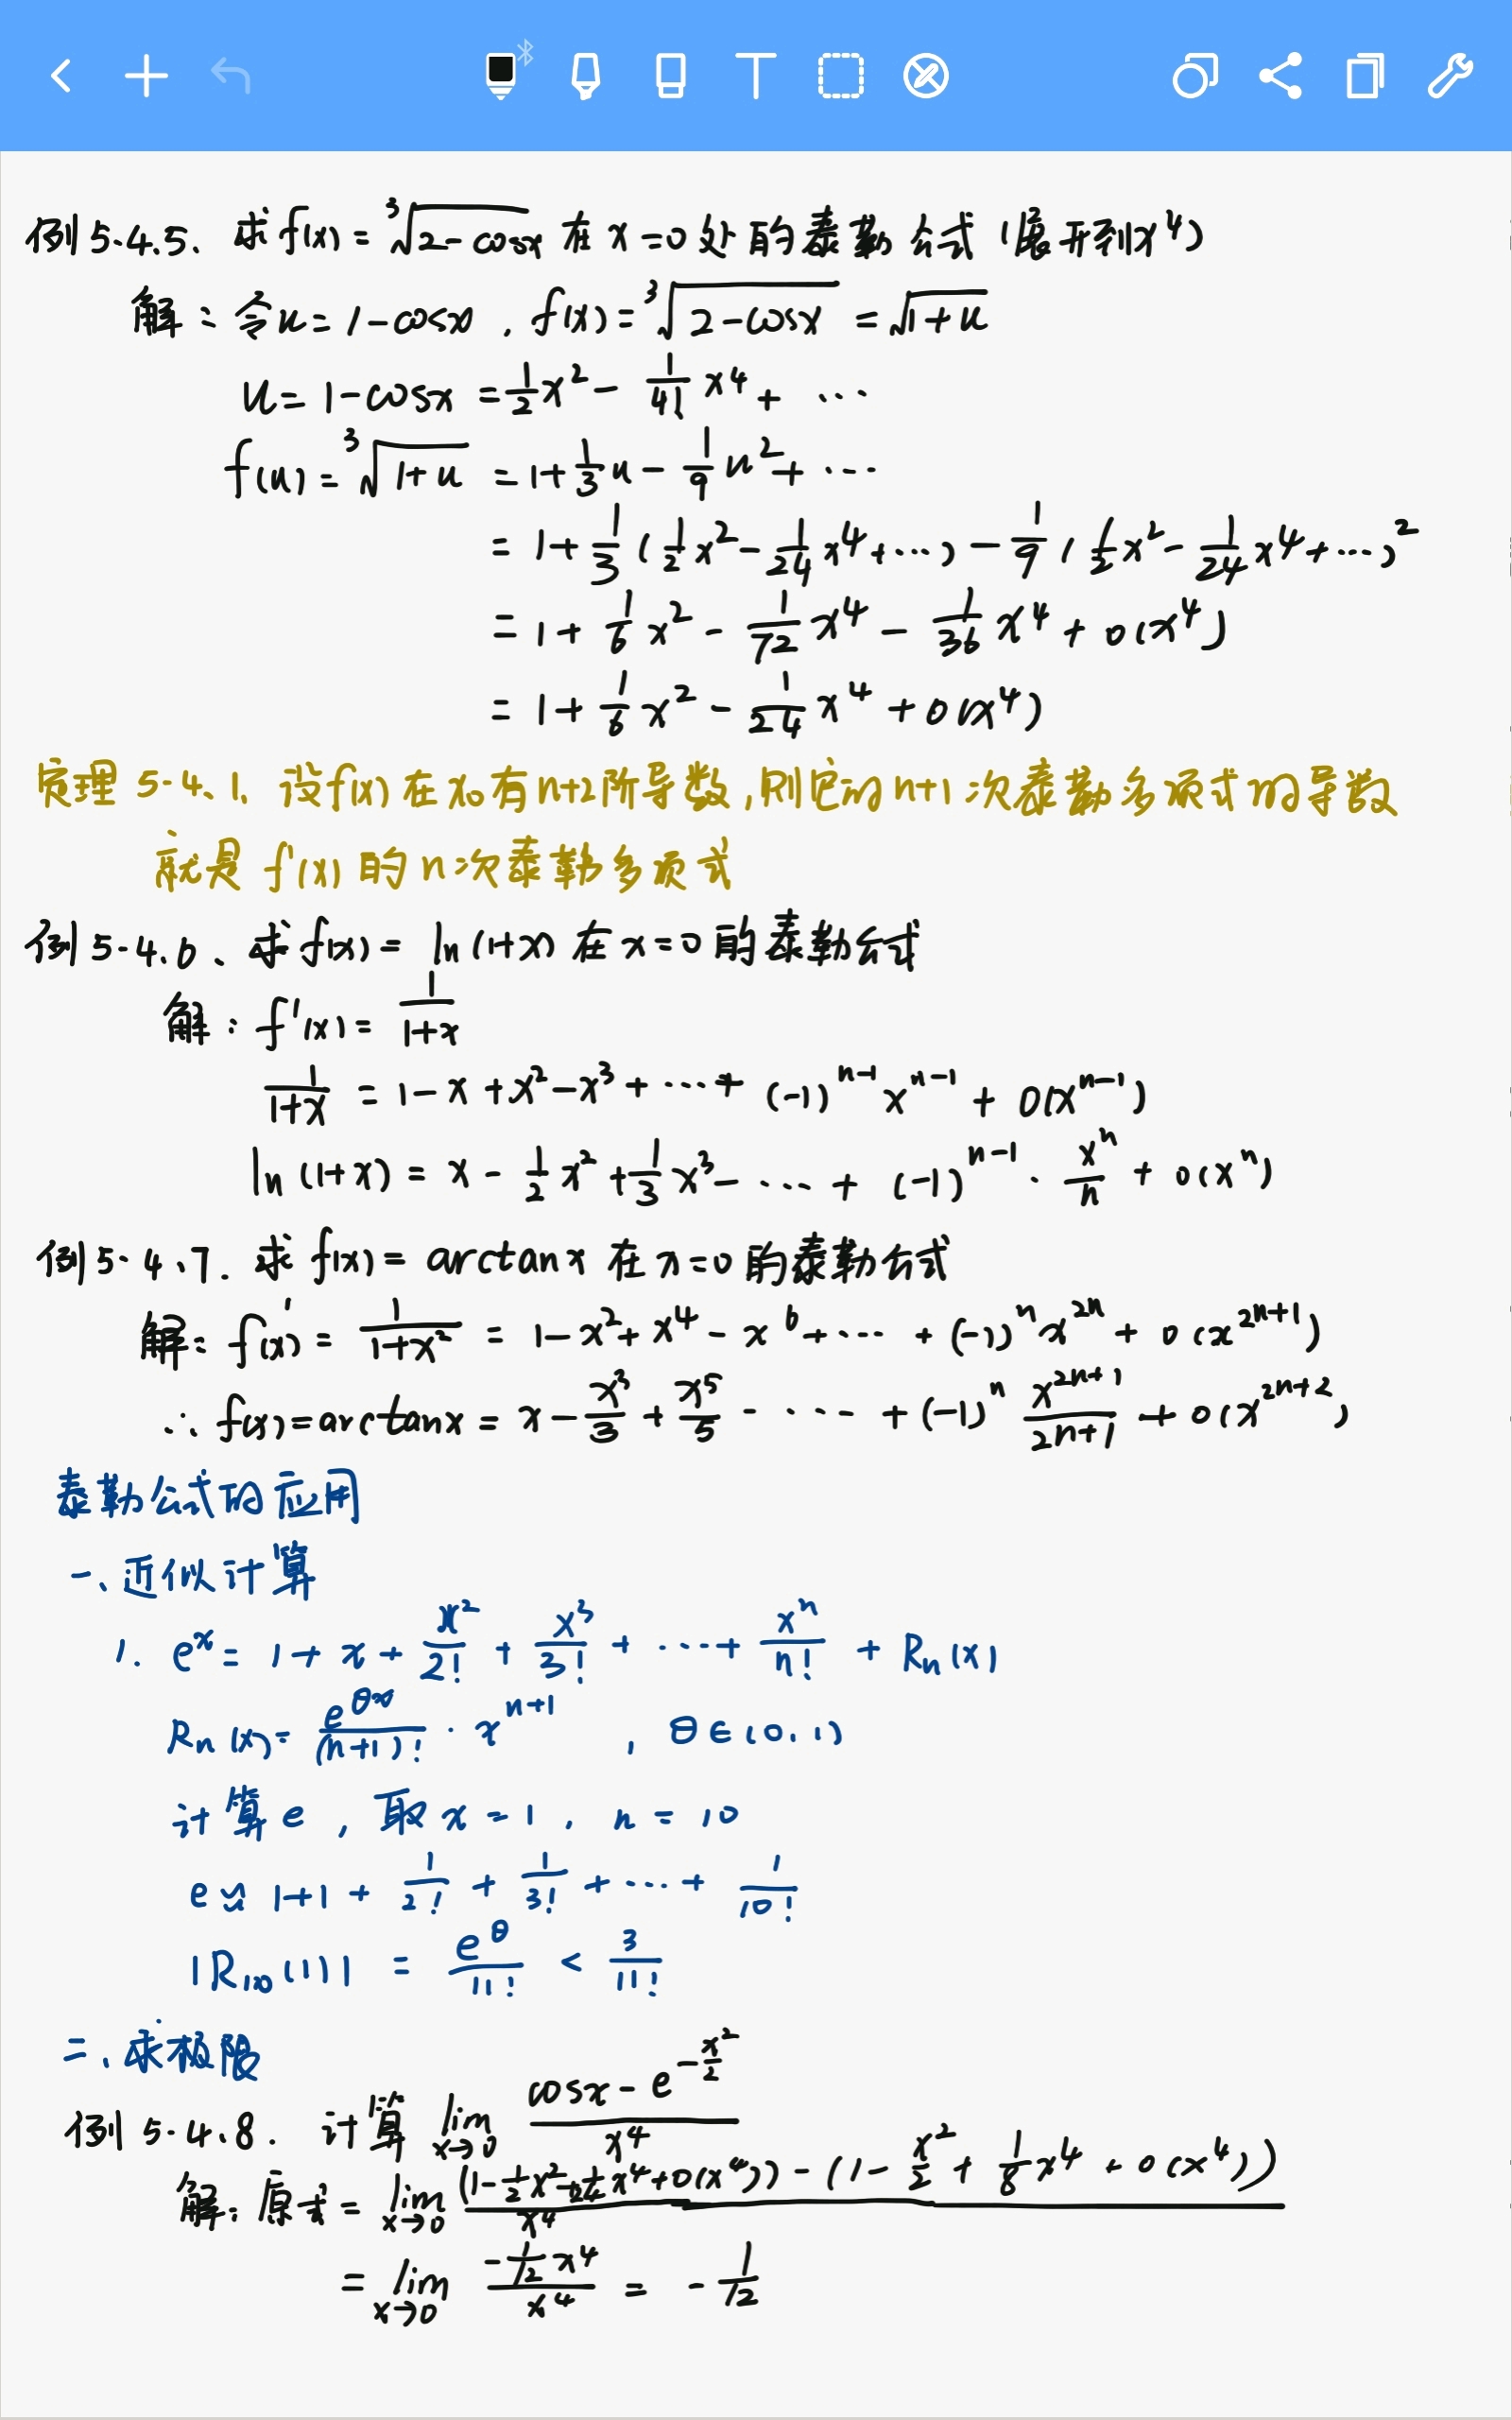 例5.4.5. 求f(x)=³√2-cosx 在 x=0处的泰勒公式(展开到x⁴)
解：令u=1-cosx , f(x)=³√2-cosx = √1+u
u=1-cosx = 1/2 x² - 1/4! x⁴ + ⋯
f(u)=³√1+u = 1+1/3 u - 1/9 u² + ⋯
= 1+1/3(1/2 x² - 1/24 x⁴+⋯) - 1/9(1/2 x² - 1/24 x⁴+⋯)²
= 1+1/6 x² - 1/72 x⁴ - 1/36 x⁴ + o(x⁴)
= 1+1/6 x² - 1/24 x⁴ + o(x⁴)
定理 5.4.1. 设f(x)在x₀有n+2阶导数,则它的n+1次泰勒多项式的导数
就是 f'(x)的n次泰勒多项式
例5.4.6. 求f(x)= ln(1+x)在x=0的泰勒公式
解：f'(x)= 1/1+x
1/1+x = 1-x+x²-x³+⋯+(-1)ⁿ⁻¹xⁿ⁻¹+o(xⁿ⁻¹)
ln(1+x)= x - 1/2 x² + 1/3 x³ - ⋯ + (-1)ⁿ⁻¹ · xⁿ/n + o(xⁿ)
例5.4.7. 求f(x)= arctanx 在x=0的泰勒公式
解: f'(x)= 1/1+x² = 1-x²+x⁴-x⁶+⋯+(-1)ⁿx²ⁿ+o(x²ⁿ⁺¹)
∴ f(x)=arctanx = x - x³/3 + x⁵/5 - ⋯ + (-1)ⁿ x²ⁿ⁺¹/2n+1 + o(x²ⁿ⁺²)
泰勒公式的应用
一、近似计算
1. eˣ = 1+x+x²/2!+x³/3!+⋯+xⁿ/n! + Rn(x)
Rn(x)= e^θx/(n+1)! · xⁿ⁺¹ , θ∈(0,1)
计算e , 取x=1, n=10
e≈1+1+1/2!+1/3!+⋯+1/10!
|R₁₀(1)| = e^θ/11! < 3/11!
二、求极限
例5.4.8. 计算 lim x→0 cosx-e^(-x²/2) / x⁴
解: 原式= lim x→0 (1-1/2 x²+1/24 x⁴+o(x⁴))-(1-x²/2+1/8 x⁴+o(x⁴)) / x⁴
= lim x→0 -1/12 x⁴ / x⁴ = -1/12